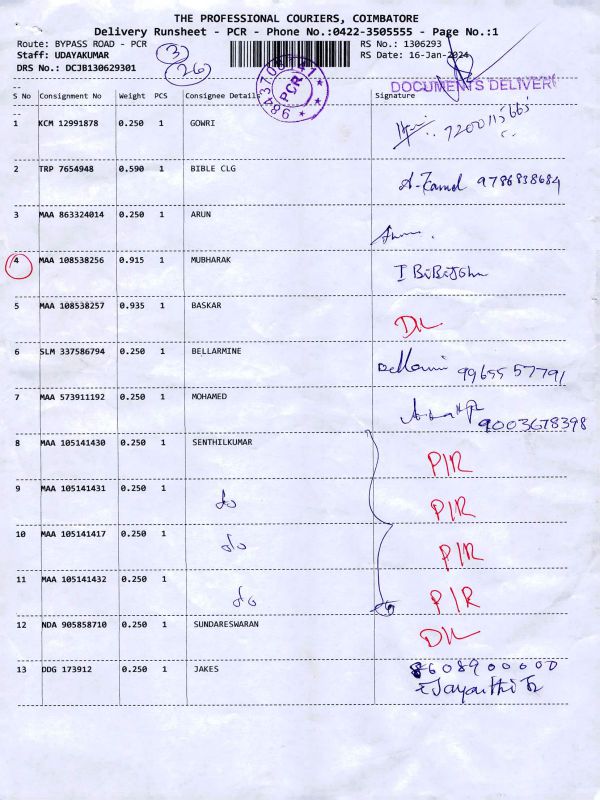 THE PROFESSIONAL COURIERS, COIMBATORE
Delivery Runsheet - PCR - Phone No.:0422-3505555 - Page No.:1
Route: BYPASS ROAD - PCR RS No.: 1306293
Staff: UDAYAKUMAR 3 RS Date: 16-Jan-2024
DRS No.: DCJB130629301 26
PCR
DOCUMENTS DELIVERY
S No Consignment No Weight PCS Consignee Details Signature
1 KCM 12991878 0.250 1 GOWRI 7200115665
2 TRP 7654948 0.590 1 BIBLE CLG 9786838684
3 MAA 863324014 0.250 1 ARUN
4 MAA 108538256 0.915 1 MUBHARAK I BiBiJohn
5 MAA 108538257 0.935 1 BASKAR D/L
6 SLM 337586794 0.250 1 BELLARMINE 9965557791
7 MAA 573911192 0.250 1 MOHAMED 9003678398
8 MAA 105141430 0.250 1 SENTHILKUMAR P/R
9 MAA 105141431 0.250 1 do P/R
10 MAA 105141417 0.250 1 do P/R
11 MAA 105141432 0.250 1 do P/R
12 NDA 905858710 0.250 1 SUNDARESWARAN D/L
13 DDG 173912 0.250 1 JAKES 8608900000